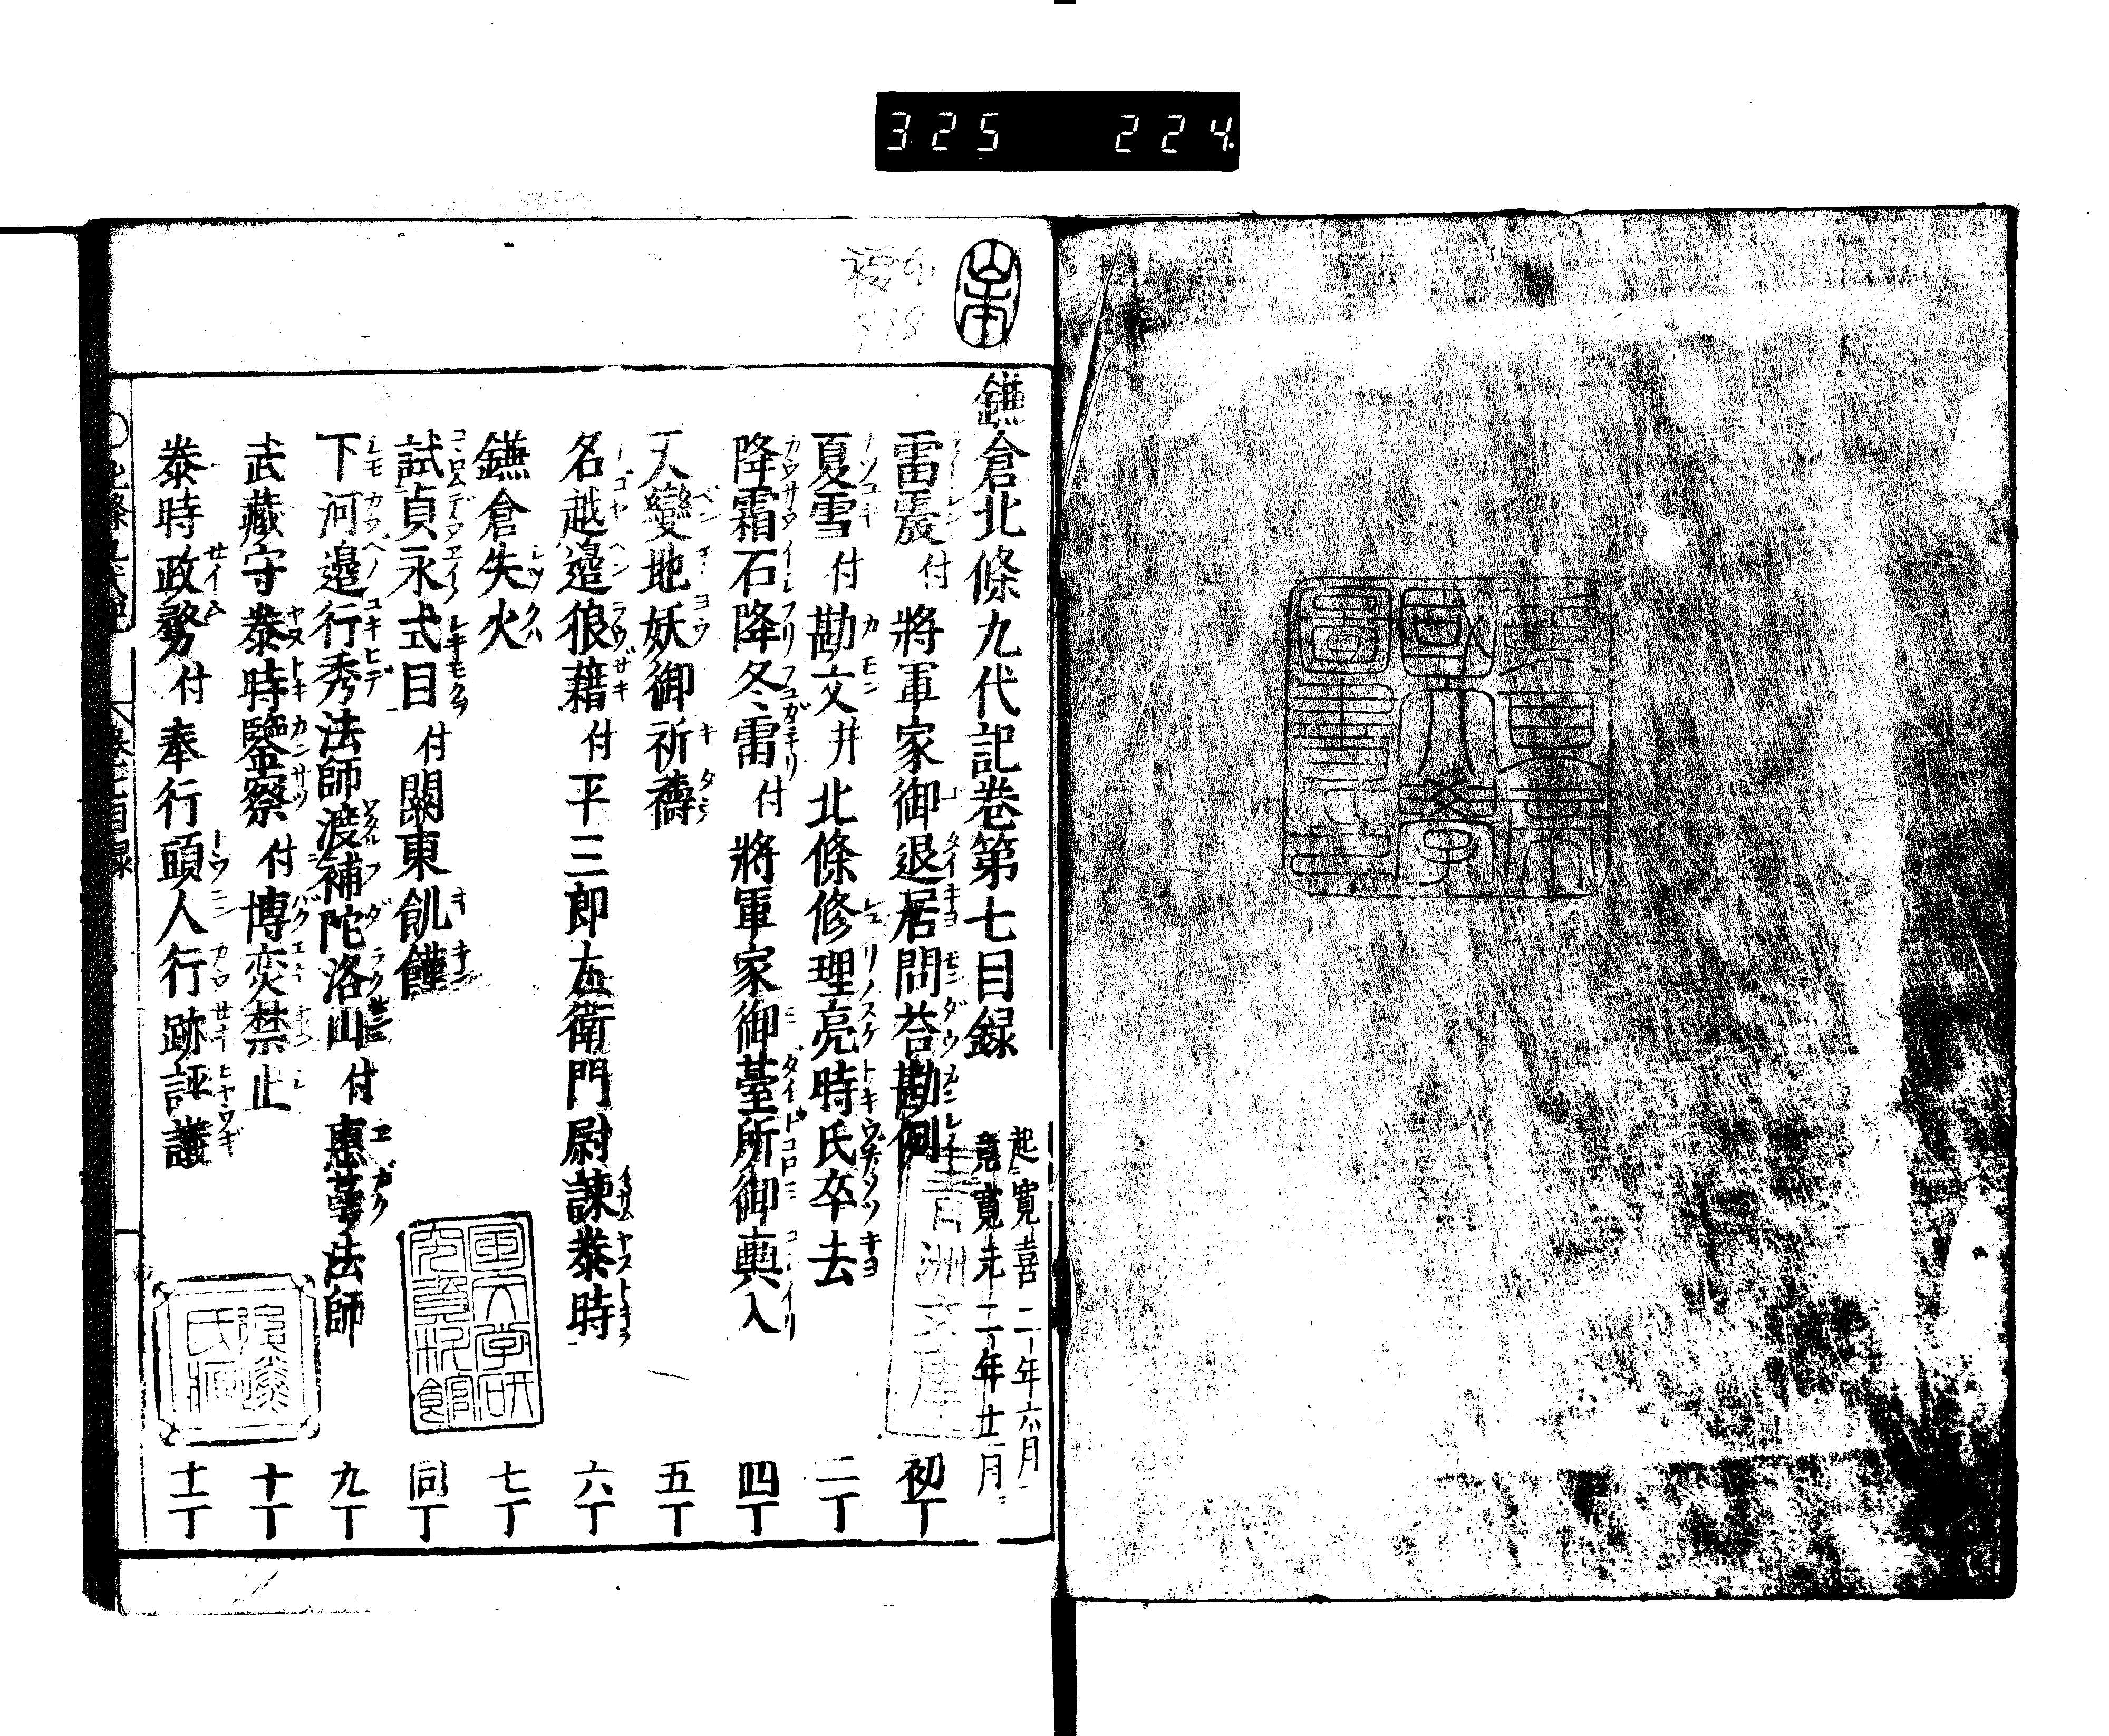 325 224
鎌倉北條九代記巻第七目録
起寛喜二年六月
竟寛元二年廿一月
雷震付將軍家御退居問荅勘例 初丁
夏雪付勘文并北條修理亮時氏卒去 二丁
降霜石降冬雷付將軍家御臺所御輿入 四丁
天變地妖御祈禱 五丁
名越邉狼藉付平三郎左衛門尉諫泰時 六丁
鎌倉失火 七丁
試貞永式目付關東飢饉 同丁
下河邉行秀法師渡補陀洛山付惠萼法師 九丁
武藏守泰時鑒察付博奕禁止 十丁
泰時政務付奉行頭人行跡評議 十一丁
青洲文庫
国文学研
究資料館